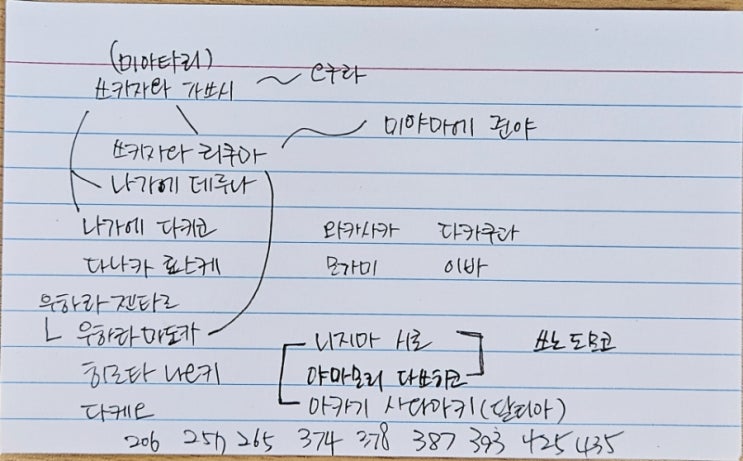 (미야타리)
쓰카자와 가쓰시 ~ 오쿠라
쓰키자와 리쿠마 미야마에 준야
나가에 데루나
나가에 다키코 와카사카 다카쿠라
다나카 료스케 모가미 이바
우하라 겐타로
ㄴ 우하라 마도카 니지마 시로 쓰노 도모코
히로타 나오키 야마모리 다쓰히코
다케오 아카기 사다아키(달리아)
206 257 265 374 378 387 393 425 435